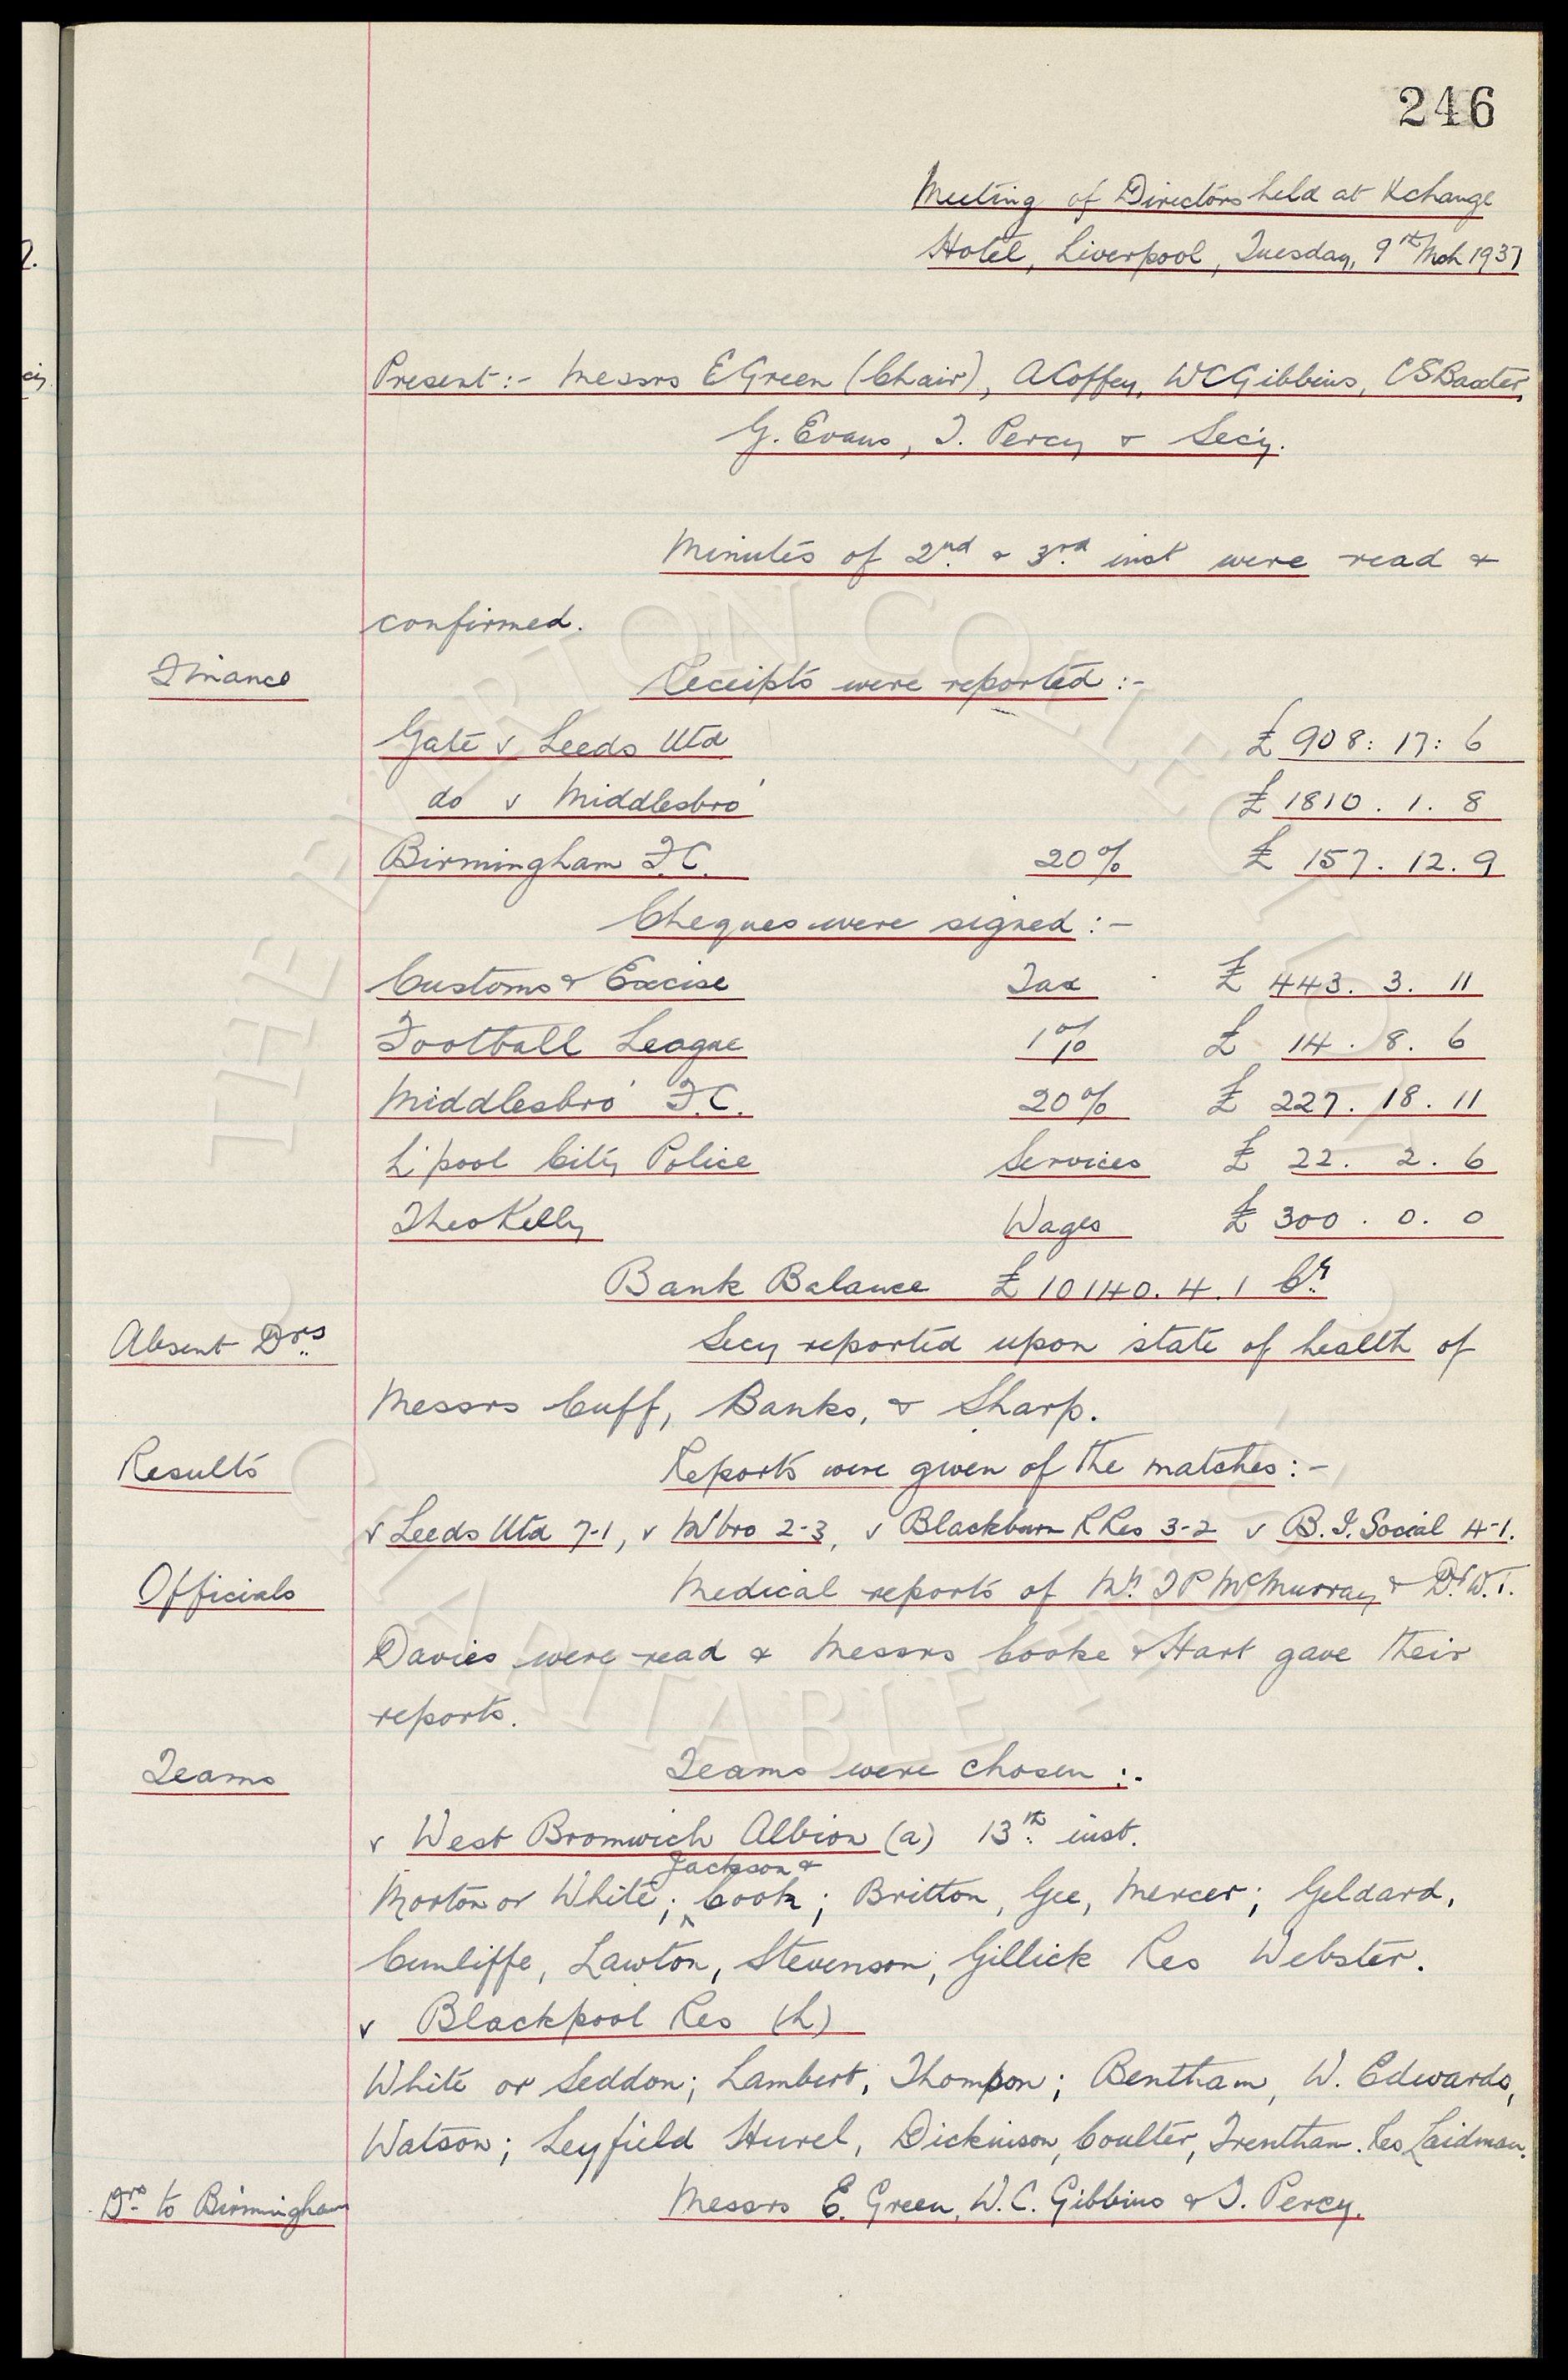 246
Meeting of Directors held at Xchange
Hotel, Liverpool, Tuesday, 9th Mch 1937
Present:- Messrs E Green (Chair), A Coffey, W C Gibbins, C S Baxter,
G. Evans, T. Percy & Secy.
Minutes of 2nd & 3rd inst were read &
confirmed.
Finance Receipts were reported:-
Gate v Leeds Utd £ 908: 17: 6
do v Middlesbro' £ 1810. 1. 8
Birmingham F.C. 20% £ 157. 12. 9
Cheques were signed:-
Customs & Excise Tax £ 443. 3. 11
Football League 1% £ 14. 8. 6
Middlesbro' F.C. 20% £ 227. 18. 11
L'pool City Police Services £ 22. 2. 6
Theo Kelly Wages £ 300. 0. 0
Bank Balance £ 10140. 4. 1 Cr.
Absent Drs Secy reported upon state of health of
Messrs Cuff, Banks, & Sharp.
Results Reports were given of the matches:-
v Leeds Utd 7-1, v M'bro 2-3, v Blackburn R Res 3-2 v B.I. Social 4-1.
Officials Medical reports of Mr. T P McMurray & Dr. W.T.
Davies were read & Messrs Cooke & Hart gave their
reports.
Teams Teams were chosen:-
v West Bromwich Albion (a) 13th inst.
Jackson &
Morton or White; ^ Cook; Britton, Gee, Mercer; Geldard,
Cunliffe, Lawton, Stevenson, Gillick Res Webster.
v Blackpool Res (h)
White or Seddon; Lambert, Thomson; Bentham, W. Edwards,
Watson; Leyfield Hurel, Dickinson, Coulter, Trentham. Res Laidman.
Drs to Birmingham Messrs E. Green, W.C. Gibbins & T. Percy.